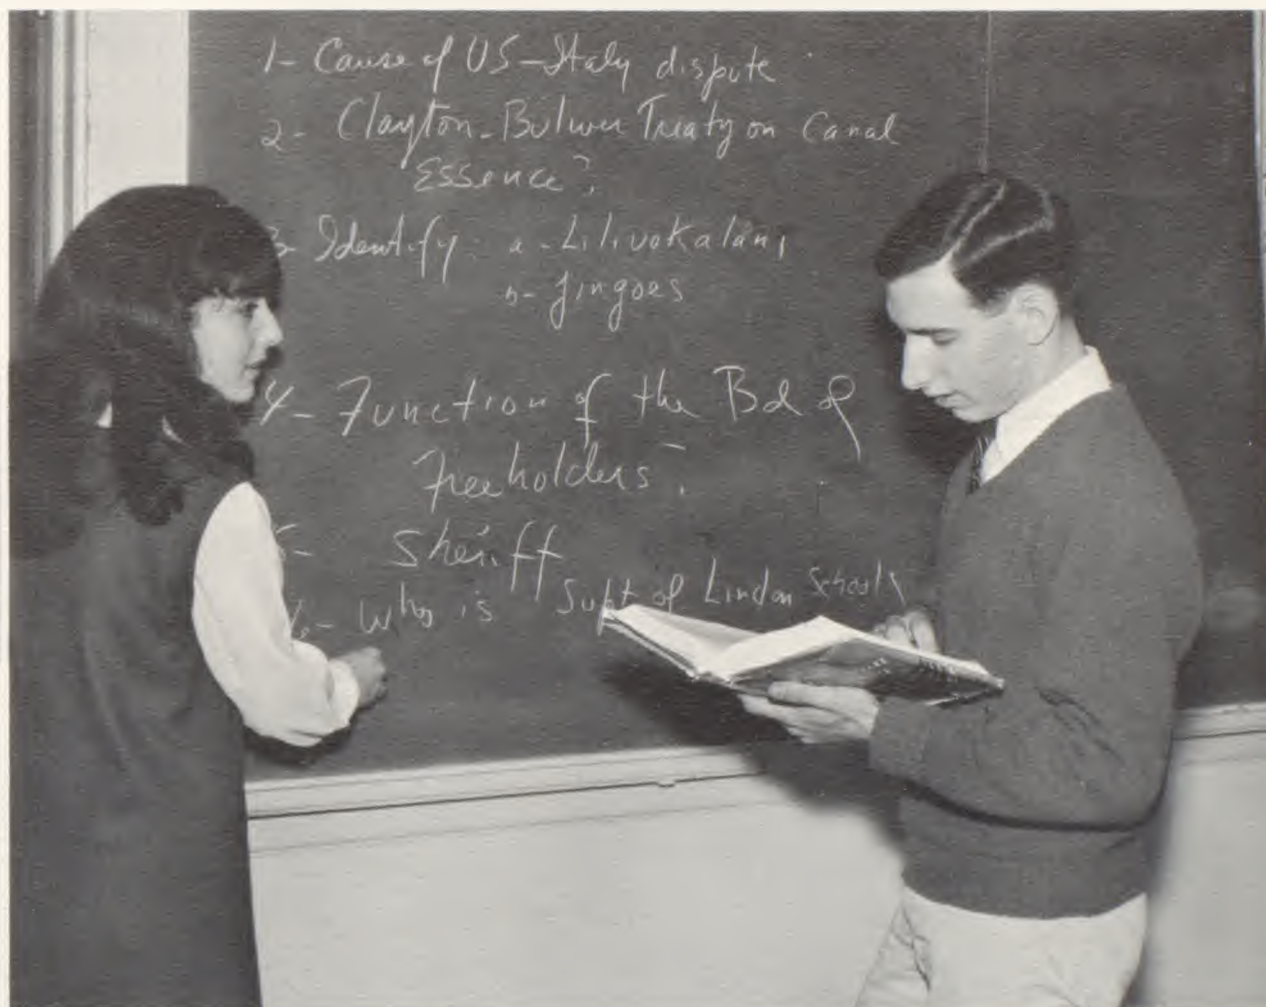 1- Cause of US-Italy dispute
2- Clayton-Bulwer Treaty on Canal
Essence?
3- Identify: a- Liliuokalani
b- Jingoes
4- Function of the Bd of
Freeholders?
5- Sheriff
6- Who is Supt of Linden Schools